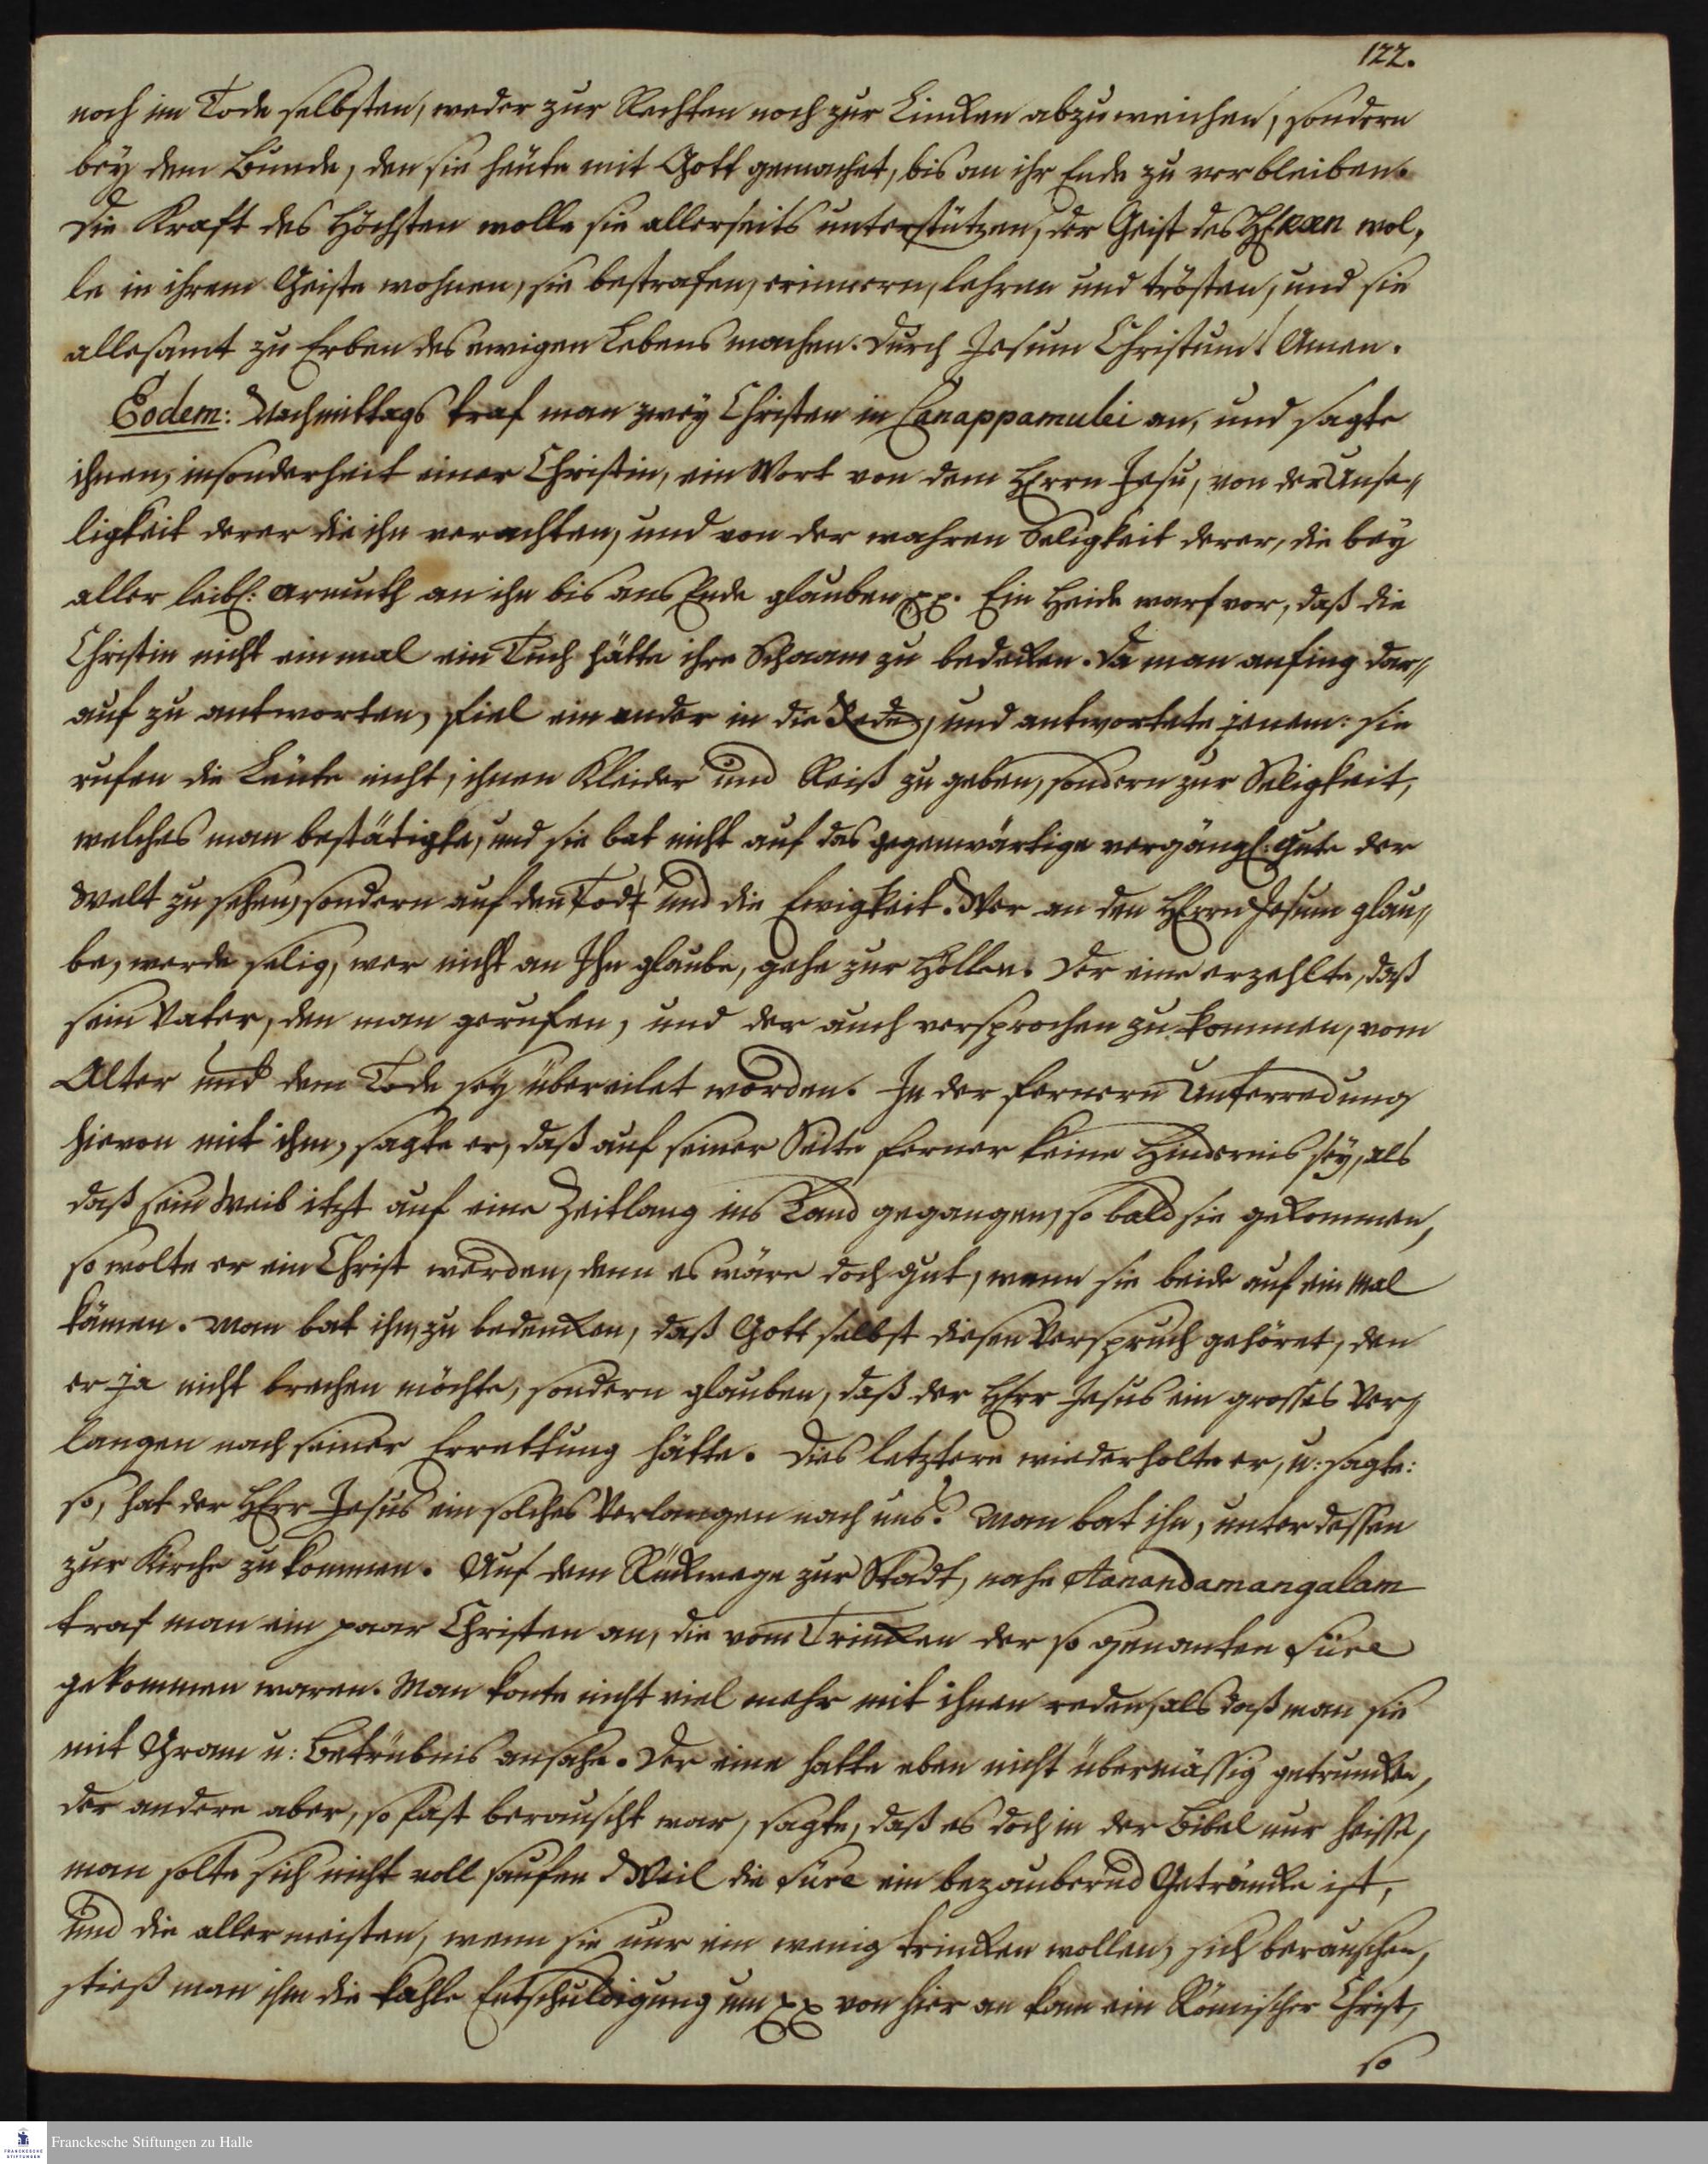 122.
noch im Tode selbsten, weder zur Rechten noch zur Lincken abzuweichen, sondern
bey dem Bunde, den sie heute mit Gott gemachet, bis an ihr Ende zu verbleiben.
Die Kraft des Höchsten wolle sie allerseits unterstützen, der Geist des HErren wol,
le in ihrem Geiste wohnen, sie bestrafen, erinnern, lehren und trösten, und sie
allesamt zu Erben des ewigen Lebens machen. Durch Jesum Christum! Amen.
Eodem: Nachmittags traf man zwey Christen in Canappamulei an, und sagte
ihnen, insonderheit einer Christin, ein Wort von dem HErrn Jesu, von der Unse„
ligkeit derer die ihn verachten, und von der wahren Seligkeit derer, die bey
aller leibl: Armuth an ihn bis ans Ende glauben pp. Ein Heide warf vor, daß die
Christin nicht einmal ein Tuch hätte ihre Schaam zu bedecken. Da man anfing dar„
auf zu antworten, fiel ein ander in die Rede, und antwortete jenem: sie
rufen die Leute nicht, ihnen Kleider und Reiß zu geben, sondern zur Seligkeit,
welches man bestätigte, und sie bat nicht auf das gegenwärtige vergängl: Gute der
Welt zu sehen, sondern auf den Todt und die Ewigkeit. Wer an den HErrn Jesum glau„
be, werde selig, wer nicht an Ihn glaube, gehe zur Höllen. Der eine erzehlte, daß
sein Vater, den man gerufen, und der auch versprochen zu kommen, vom
Alter und dem Tode sey übereilet worden. In der fernern Unterredung
hievon mit ihm, sagte er, daß auf seiner Seite ferner keine Hindernis sey, als
daß sein Weib itzt auf eine Zeitlang ins Land gegangen, so bald sie gekommen,
so wolte er ein Christ werden, denn es wäre doch gut, wenn sie beide auf ein mal
kämen. Man bat ihn, zu bedencken, daß Gott selbst diesen Verspruch gehöret, den
er ja nicht brechen möchte, sondern glauben, daß der HErr Jesus ein grosses Ver„
langen nach seiner Errettung hätte. Dies letztere wiederholte er, u: sagte:
so, hat der HErr Jesus ein solches Verlangen nach uns? Man bat ihn, unter dessen
zur Kirche zu kommen. Auf dem Rückwege zur Stadt, nahe Aanandamangalam
traf man ein paar Christen an, die vom Trincken der so genanten Süre
gekommen waren. Man konte nicht viel mehr mit ihnen reden, als daß man sie
mit Gram u: Betrübnis ansahe. Der eine hatte eben nicht übermässig getruncken,
der andere aber, so fast berauscht war, sagte, daß es doch in der Bibel nur heisse,
man solte sich nicht voll saufen. Weil die Süre ein bezaubernd Geträncke ist,
und die allermeisten, wenn sie nur ein wenig trincken wollen, sich berauschen,
stieß man ihm die kahle Entschuldigung um pp von hier an kam ein Römischer Christ,
so
Franckesche Stiftungen zu Halle